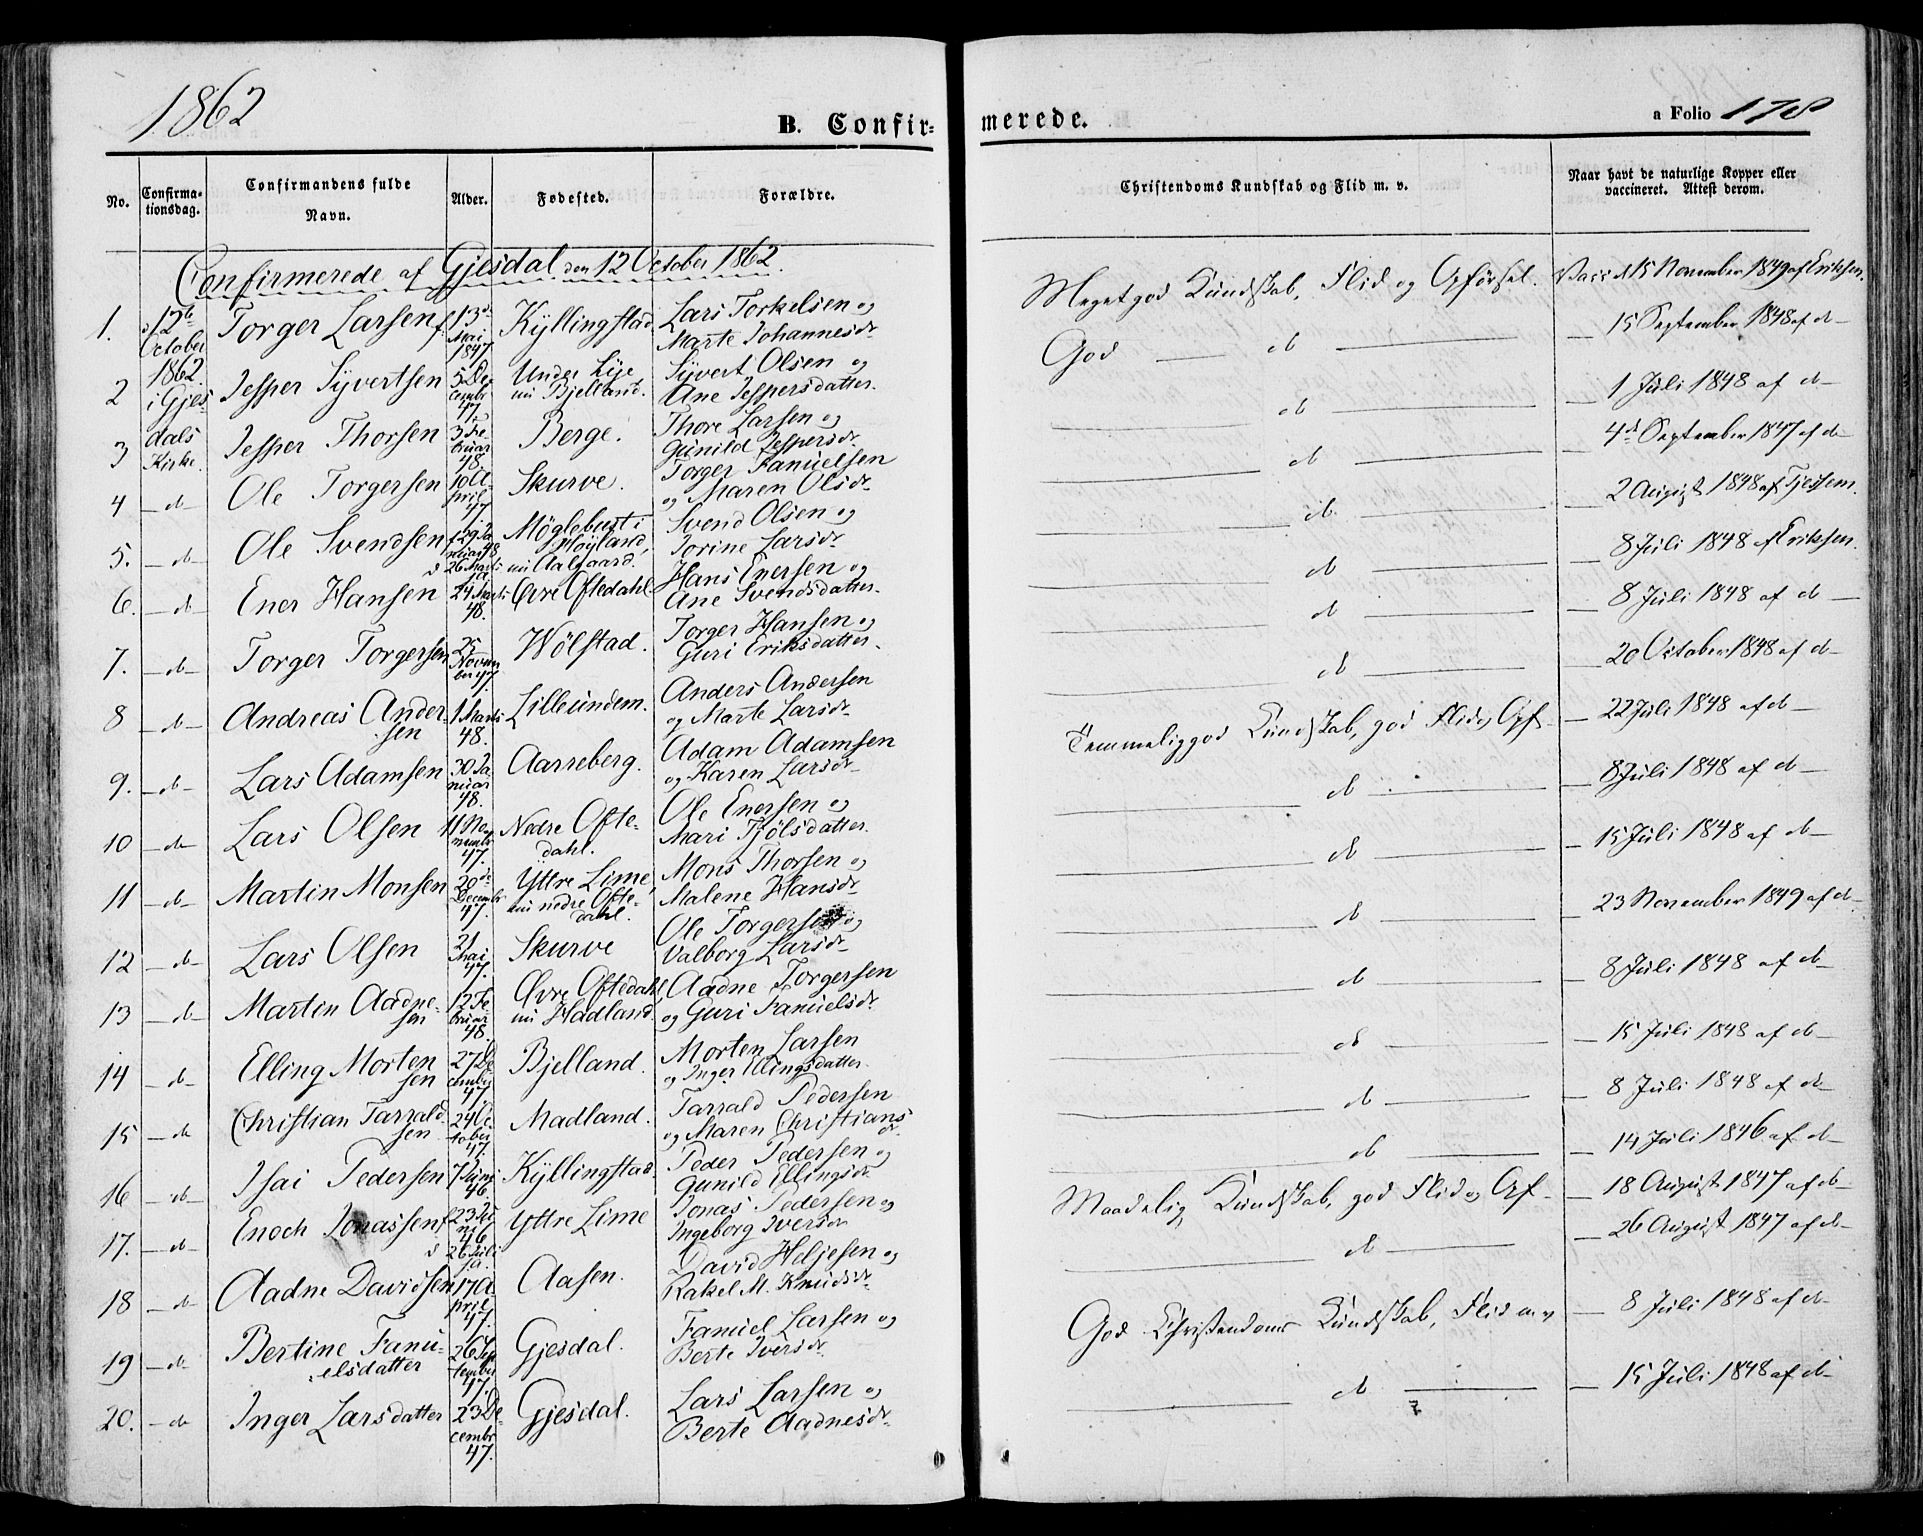 1862
B. Confir-
merede.
a Folio 178
No.
Confirma-
tionsdag.
Confirmandens fulde
Navn.
Alder.
Fødested.
Forældre.
Christendoms Kundskab og Flid m. v.
Naar havt de naturlige Kopper eller
vaccineret. Attest derom.
Confirmerede af Gjesdal den 12 October 1862.
1. d 12te October 1862. i Gjesdals Kirke. Torger Larsen f. 13de Mai 1847 Kyllingstad Lars Torkelsen og Marte Johannesdr Meget god Kundskab, Flid og Opførsel. Vacc d 15 November 1849 af Eriksen.
2 Jesper Syvertsen 5 December 47. Under Lye nu Bjelland. Syvert Olsen og Ane Jespersdatter. God — do — 15 September 1848 af do
3 Jesper Thorsen 3 Februar 48. Berge. Thore Larsen og Gunild Jespersdr — do — 1 Juli 1848 af do
4 — do — Ole Torgersen 10 April 47. Skurve. Torger Famuelsen og Maren Olsdr — do — 4de September 1847 af do
5. — do — Ole Svendsen f 29 Januar 48 d 26 Marts s.a. Møglebust i Høyland, nu Aalgaard. Svend Olsen og Jorine Larsdr — do — 2 August 1848 af Tjessem.
6. — do — Ener Hansen 24 Marts 48. Øvre Oftedahl Hans Enersen og Ane Svendsdatter. — do — 8 Juli 1848 af Eriksen.
7. — do — Torger Torgersen 25 November 47. Wølstad. Torger Hansen og Guri Eriksdatter. — do — 8 Juli 1848 af do —
8 — do — Andreas Andersen 1 Marts 48. Lilleundem. Anders Andersen og Marte Larsdr — do — 20 October 1848 af do
9. — do — Lars Adamsen 30 Januar 48. Aarreberg. Adam Adamsen og Karen Larsdr Temmelig god Kundskab, god Flid og Opf. — 22 Juli 1848 af do —
10 — do — Lars Olsen 11 November 47. Nedre Oftedahl. Ole Enersen og Mari Tjølsdatter. — do — 8 Juli 1848 af do —
11 — do — Martin Monsen 20de December 47. Yttre Lime, nu nedre Oftedahl. Mons Thorsen og Malene Hansdr — do — 15 Juli 1848 af do —
12 — do — Lars Olsen 21 Mai 47. Skurve Ole Torgersen og Valborg Larsdr — do — 23 November 1849 af do
13 — do — Martin Aadnesen 12 Februar 48. Øvre Oftedahl, nu Hadland Aadne Torgersen og Guri Famuelsdr — do — 8 Juli 1848 af do
14 — do — Elling Mortensen 27 December 47. Bjelland. Morten Larsen og Inger Ellingsdatter — do — 15 Juli 1848 af do
15 — do Christian Tarraldsen 24 October 47. Madland. Tarrald Pedersen og Maren Christiansdr. — do — 8 Juli 1848 af do
16 — do — Isai Pedersen 7 Juni 46. Kyllingstad Peder Pedersen og Gunild Ellingsdr — do — 14 Juli 1846 af do
17. — do — Enoch Jonassen f 23 Juni 46 d 26 Juli s.a. Yttre Lime Jonas Pedersen og Ingeborg Iversdr Maadelig Kundskab, god Flid og Opf. — 18 August 1847 af do
18 — do — Aadne Davidsen 17 April 47. Aasen. David Heljesen og Rakel M. Knudsdr — do — 26 August 1847 af do
19 — do — Bertine Famuelsdatter 26 September 47. Gjesdal. Famuel Larsen og Berte Iversdr. God Christendoms Kundskab, Flid m. v — 8 Juli 1848 af do
20. — do Inger Larsdatter 23 December 47. Gjesdal. Lars Larsen og Berte Aadnesdr — do — 15 Juli 1848 af do